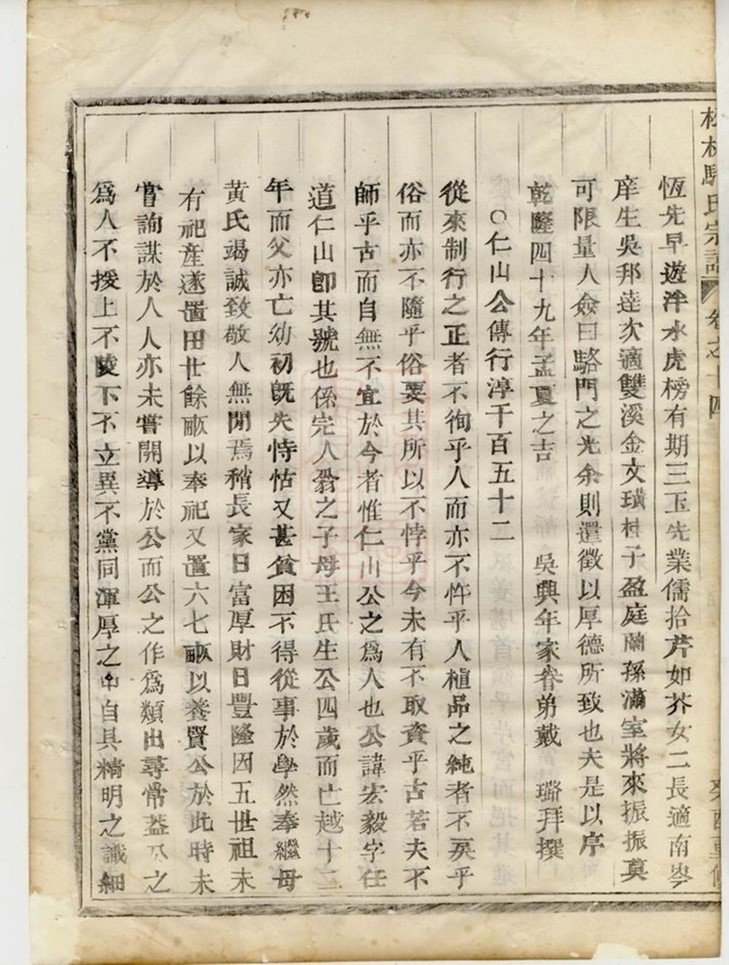 駱氏宗譜 卷之十四 癸酉重修
恆先早遊泮水虎榜有期三玉先業儒拾芹如芥女二長適南岑
庠生吳邦達次適雙溪金文璜桂子盈庭蘭孫滿室將來振振奠
可限量人僉曰駱門之光余則還徵以厚德所致也夫是以序
乾隆四十九年孟夏之吉 吳興年家眷弟戴 璐拜撰
○仁山公傳行淳千百五十二
從來制行之正者不徇乎人而亦不忤乎人植品之純者不戾乎
俗而亦不隨乎俗要其所以不悖乎今未有不取資乎古若夫不
師乎古而自無不宜於今者惟仁山公之爲人也公諱宏毅字任
道仁山卽其號也係完人翁之子母王氏生公四歲而亡越十二
年而父亦亡幼初旣失恃怙又甚貧困不得從事於學然奉繼母
黃氏竭誠致敬人無閒焉稍長家日富厚財日豐隆因五世祖未
有祀產遂置田廿餘畝以奉祀又置六七畝以養賢公於此時未
嘗詢謀於人人亦未嘗開導於公而公之作爲類出尋常葢公之
爲人不援上不陵下不立異不黨同渾厚之中自具精明之識細